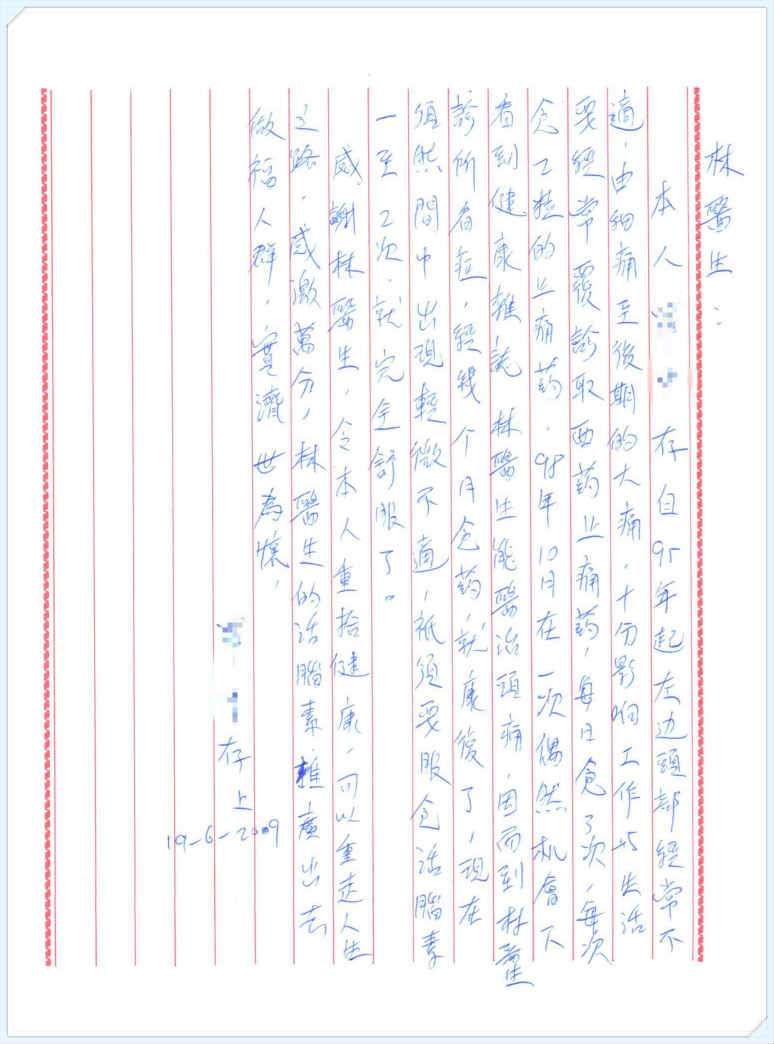 林醫生：
本人 存自95年起左边頭部經常不
適，由細痛至後期的大痛，十分影响工作与生活
要經常覆診取西葯止痛葯，每日食3次，每次
食2粒的止痛葯。98年10月在一次偶然机會下
看到健康雜誌林醫生能醫治頭痛，因而到林醫生
診所看症，經幾个月食葯，就康復了，現在
須然間中出現輕微不適，祇須要服食活腦素
一至2次，就完全舒服了。
感謝林醫生，令本人重拾健康，可以重走人生
之路，感激萬分，林醫生的活腦素推廣出去
做福人群，實濟世為懷，
存上
19-6-2009